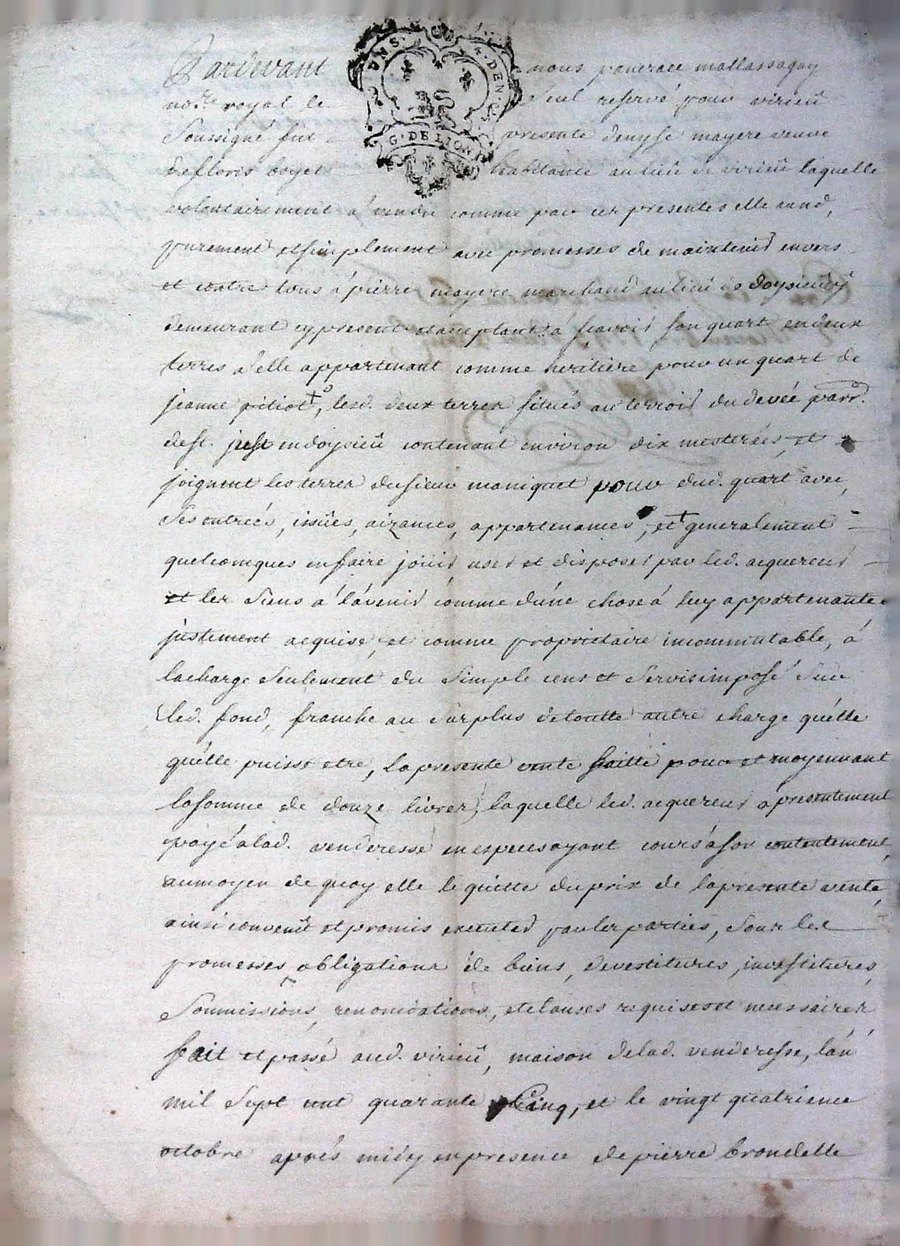 Pardevant nous pancrace mallassagny
no.re royal le seul reservé pour virieü
Soussigné fut presente denyse mayere veuve
de floris boyet habitante au lieu de virieü laquelle
DNS. DEN. C
G. DE LION
volontairement a vendu comme par ces presentes elle vend,
purement et simplement avec promesses de maintenir envers
et contre tous a pierre mayere marchand au lieu
demeurant cy present et acceptant a scavoir son quart en deux
terres a elle appartenant comme heritiere pour un quart de
jeanne pitiot, lesd. deux terres situés au terroir du devée parr.
de st. just en doysieü contenant environ dix mesterées et
joignent les terres du sieur maniquet pour dud. quart avec
ses entrées, issües, aizances, appartenances, et generalement
quelconques en faire jouir user et disposer par led. acquereur
et les siens a l'avenir comme d'une chose a luy appartenante
justement acquise, et comme proprietaire incommutable, à
la charge seulement du simple cens et servis imposé sur
led. fond, franche au surplus de toutte autre charge quelle
qu'elle puisse etre, la presente vente faitte pour et moyennant
la somme de douze livres, laquelle led. acquereur a presentement
payé a lad. venderesse en especes ayant cours a son contentement
au moyen de quoy elle le quitte du prix de la presente vente,
ainsi convenû et promis executer par les parties, sour les
promesses obligations de biens, devestitures, investitures,
Soummissions, renonciations, et clauses requises et necessaires
fait et passé aud. virieü, maison de lad. venderesse, l'an
mil sept cent quarante Cinq, et le vingt quatrieme
octobre après midy en presence de pierre brondelle